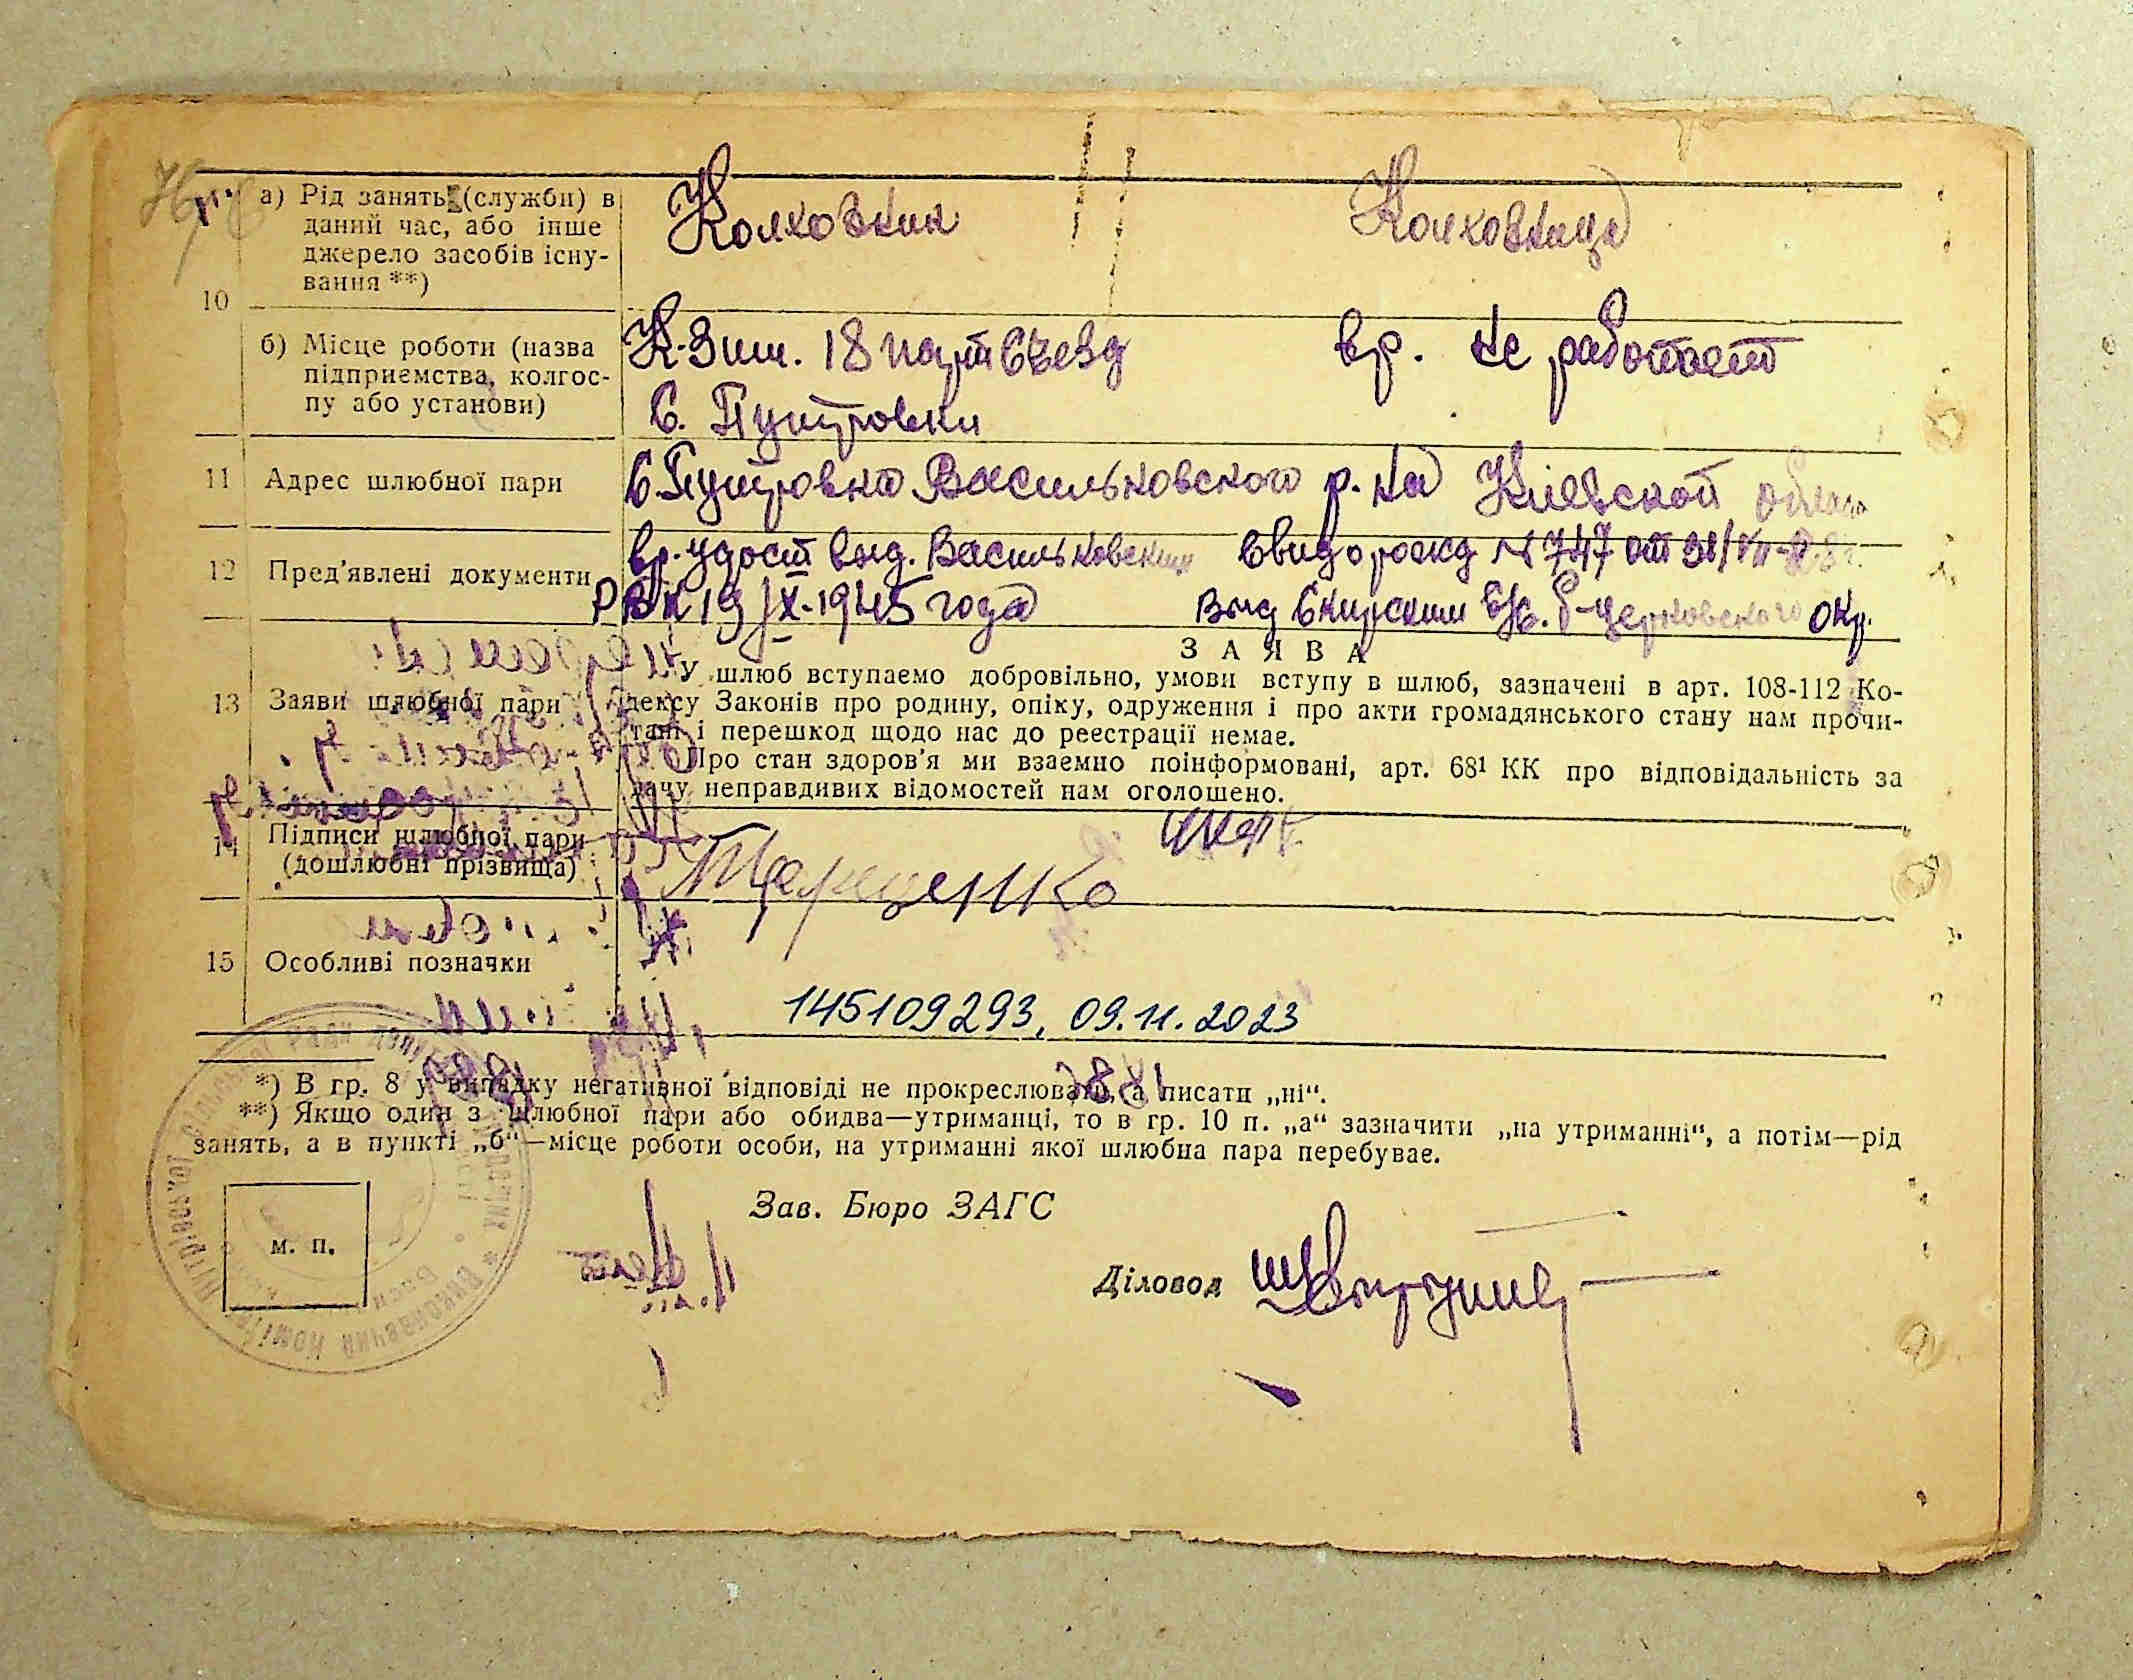 а) Рід занять (служби) в
даний час, або інше
джерело засобів існу-
вання **)
Колхозник
Колхозница
10
б) Місце роботи (назва
підприємства, колгос-
пу або установи)
К-З им. 18 парт Съезд
вр. не работает
С. Путровки
11
Адрес шлюбної пари
С. Путровка Васильковского р. на Киевской
12
Пред'явлені документи
вр. удост выд. Васильковским
РВК 19/IX-1945 года
Свид о рожд № 747 от
Выд Сквирским Б-Церковского окр.
ЗАЯВА
13
Заяви шлюбної пари
У шлюб вступаемо добровільно, умови вступу в шлюб, зазначені в арт. 108-112 Ко-
дексу Законів про родину, опіку, одруження і про акти громадянського стану нам прочи-
тані і перешкод щодо нас до реєстрації немає.
Про стан здоров'я ми взаємно поінформовані, арт. 68¹ КК про відповідальність за
дачу неправдивих відомостей нам оголошено.
14
Підписи шлюбної пари
(дошлюбні прізвища)
15
Особливі позначки
145109293, 09.11.2023
*) В гр. 8 у випадку негативної відповіді не прокреслювати, а писати „ні“.
**) Якщо один з шлюбної пари або обидва—утриманці, то в гр. 10 п. „а“ зазначити „на утриманні“, а потім—рід
занять, а в пункті „б“—місце роботи особи, на утриманні якої шлюбна пара перебуває.
Зав. Бюро ЗАГС
м. п.
Діловод